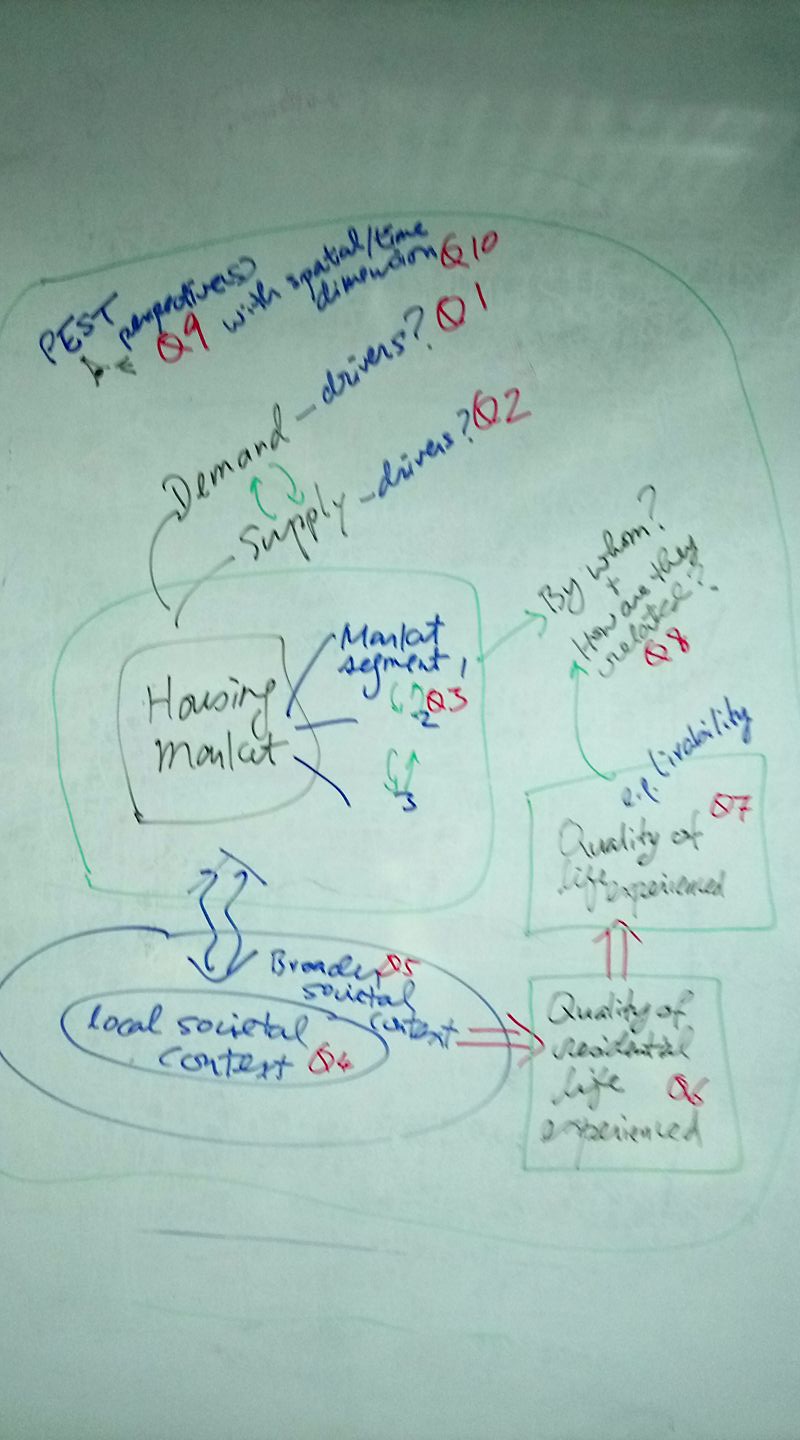 PEST
perspective(s)
Q9 with spatial/time
dimension Q10
Demand - drivers? Q1
Supply - drivers? Q2
By whom?
+
How are they
related?
Q8
Housing
Market
Market
segment 1
Q3
2
3
e.g. livability
Q7
Quality of
life experienced
Broader Q5
societal
context
local societal
context Q4
Quality of
residential
life Q6
experienced